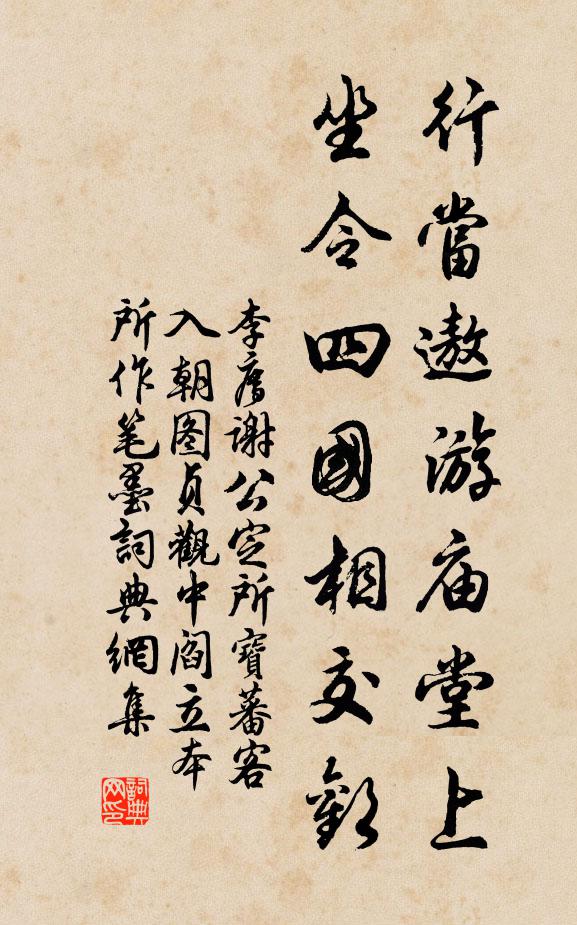 行當遨游庙堂上
坐令四國相交歡
李廌謝公定所寶蕃客
入朝图貞觀中阎立本
所作笔墨詞典網集
詞典网印